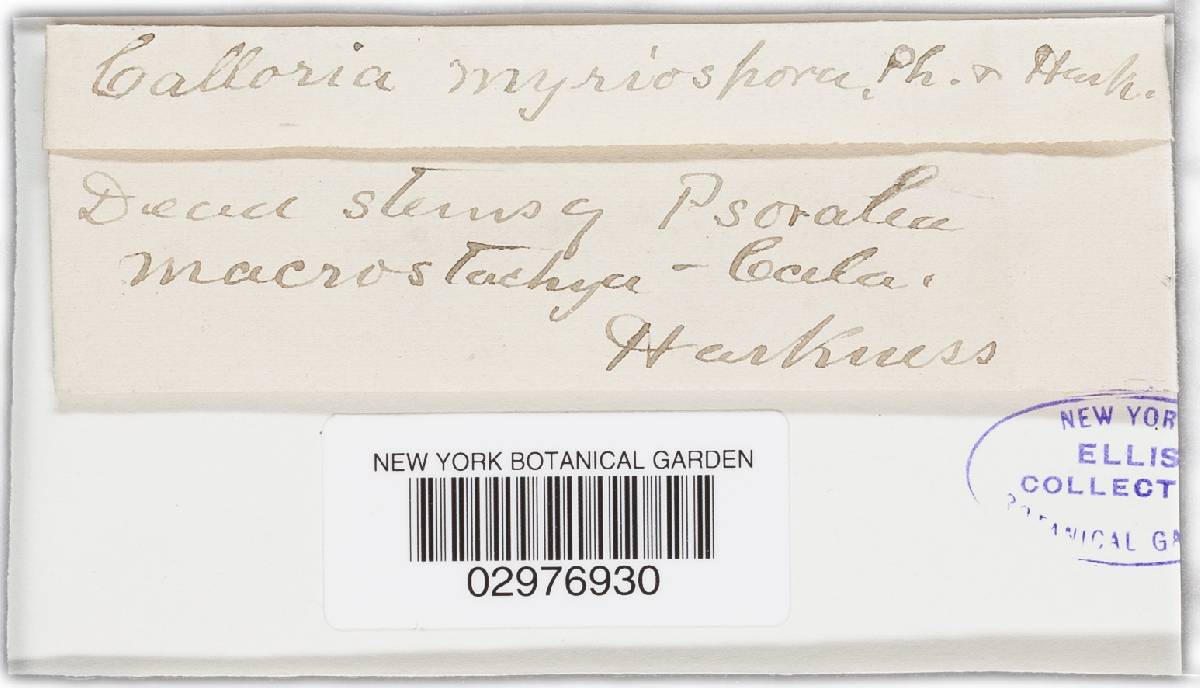 Calloria myriospora, Ph. & Hark.
Dead stems of Psoralea
macrostachya - Cala.
Harkness
NEW YORK BOTANICAL GARDEN
02976930
NEW YOR
ELLIS
COLLECT
BOTANICAL GA